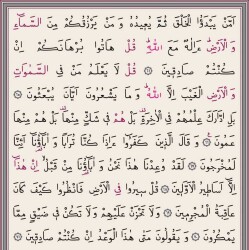 أَمَّنْ يَبْدَؤُا الْخَلْقَ ثُمَّ يُعِيدُهُ وَ مَنْ يَرْزُقُكُمْ مِنَ السَّمَاءِ
وَ الْأَرْضِ ءَإِلٰهٌ مَعَ اللّٰهِ قُلْ هَاتُوا بُرْهَانَكُمْ اِنْ
كُنْتُمْ صَادِقِينَ ۞ قُلْ لَا يَعْلَمُ مَنْ فِي السَّمٰوَاتِ
وَ الْأَرْضِ الْغَيْبَ اِلَّا اللّٰهُ وَ مَا يَشْعُرُونَ أَيَّانَ يُبْعَثُونَ ۞
بَلِ ادَّارَكَ عِلْمُهُمْ فِي الْآخِرَةِ بَلْ هُمْ فِي شَكٍّ مِنْهَا بَلْ هُمْ مِنْهَا
عَمُونَ ۞ وَ قَالَ الَّذِينَ كَفَرُوا ءَإِذَا كُنَّا تُرَابًا وَ اٰبَاؤُنَا أَئِنَّا
لَمُخْرَجُونَ ۞ لَقَدْ وُعِدْنَا هٰذَا نَحْنُ وَ اٰبَاؤُنَا مِنْ قَبْلُ اِنْ هٰذَا
اِلَّا أَسَاطِيرُ الْأَوَّلِينَ ۞ قُلْ سِيرُوا فِي الْأَرْضِ فَانْظُرُوا كَيْفَ كَانَ
عَاقِبَةُ الْمُجْرِمِينَ ۞ وَ لَا تَحْزَنْ عَلَيْهِمْ وَ لَا تَكُنْ فِي ضَيْقٍ مِمَّا
يَمْكُرُونَ ۞ وَ يَقُولُونَ مَتٰى هٰذَا الْوَعْدُ اِنْ كُنْتُمْ صَادِقِينَ ۞